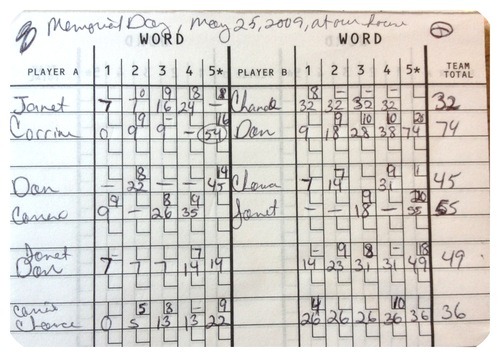 Memorial Day, May 25, 2009, at our house
WORD WORD
PLAYER A 1 2 3 4 5* PLAYER B 1 2 3 4 5* TEAM TOTAL
10 9 8 8 18 - - -
Janet 7 7 16 24 - Chance 32 32 32 32 32
9 - - 16 9 10 10
Corrine 0 9 9 - 54 Don 9 18 28 38 74 74
8 - - 7 9
Don - 22 - - 45 7 14 31 45
9 - 8 9 - - 9 - 20
9 - 26 35 Janet - - 18 - 55 55
Janet - - 7 - 9 8 - 18
Don 7 7 7 14 14 14 23 31 31 49 49
5 8 - 9 4 10
Chance 0 5 13 13 22 26 26 26 36 36 36